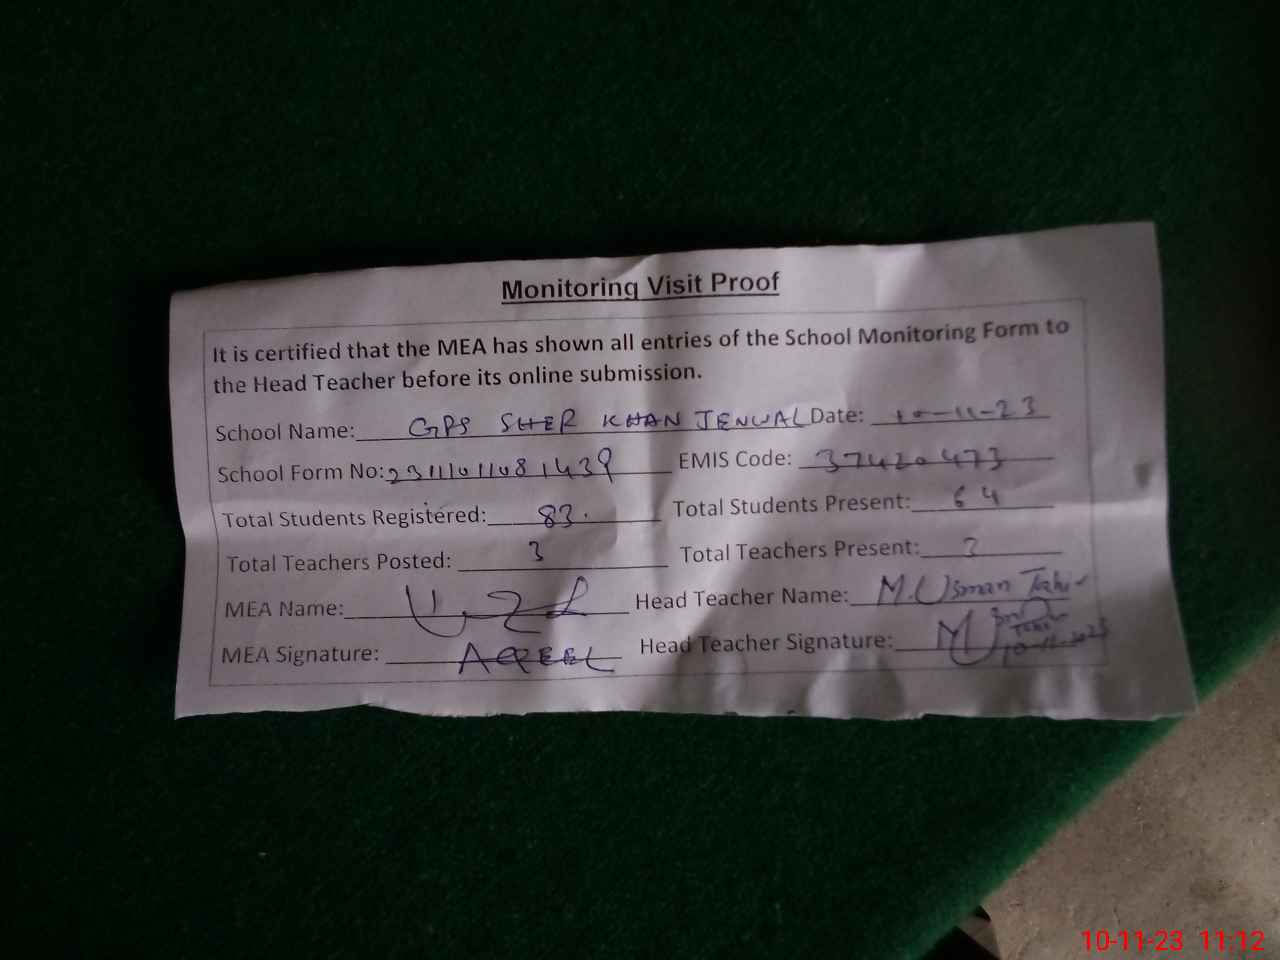 Monitoring Visit Proof
It is certified that the MEA has shown all entries of the School Monitoring Form to
the Head Teacher before its online submission.
School Name: GPS SHER KHAN JENWAL Date: 10-11-23
School Form No: 23111011081439 EMIS Code: 37420473
Total Students Registered: 83. Total Students Present: 64
Total Teachers Posted: 3 Total Teachers Present: 3
MEA Name: Head Teacher Name: M. Usman Tahir
MEA Signature: AQEEL Head Teacher Signature:
10-11-2023
10-11-23 11:12